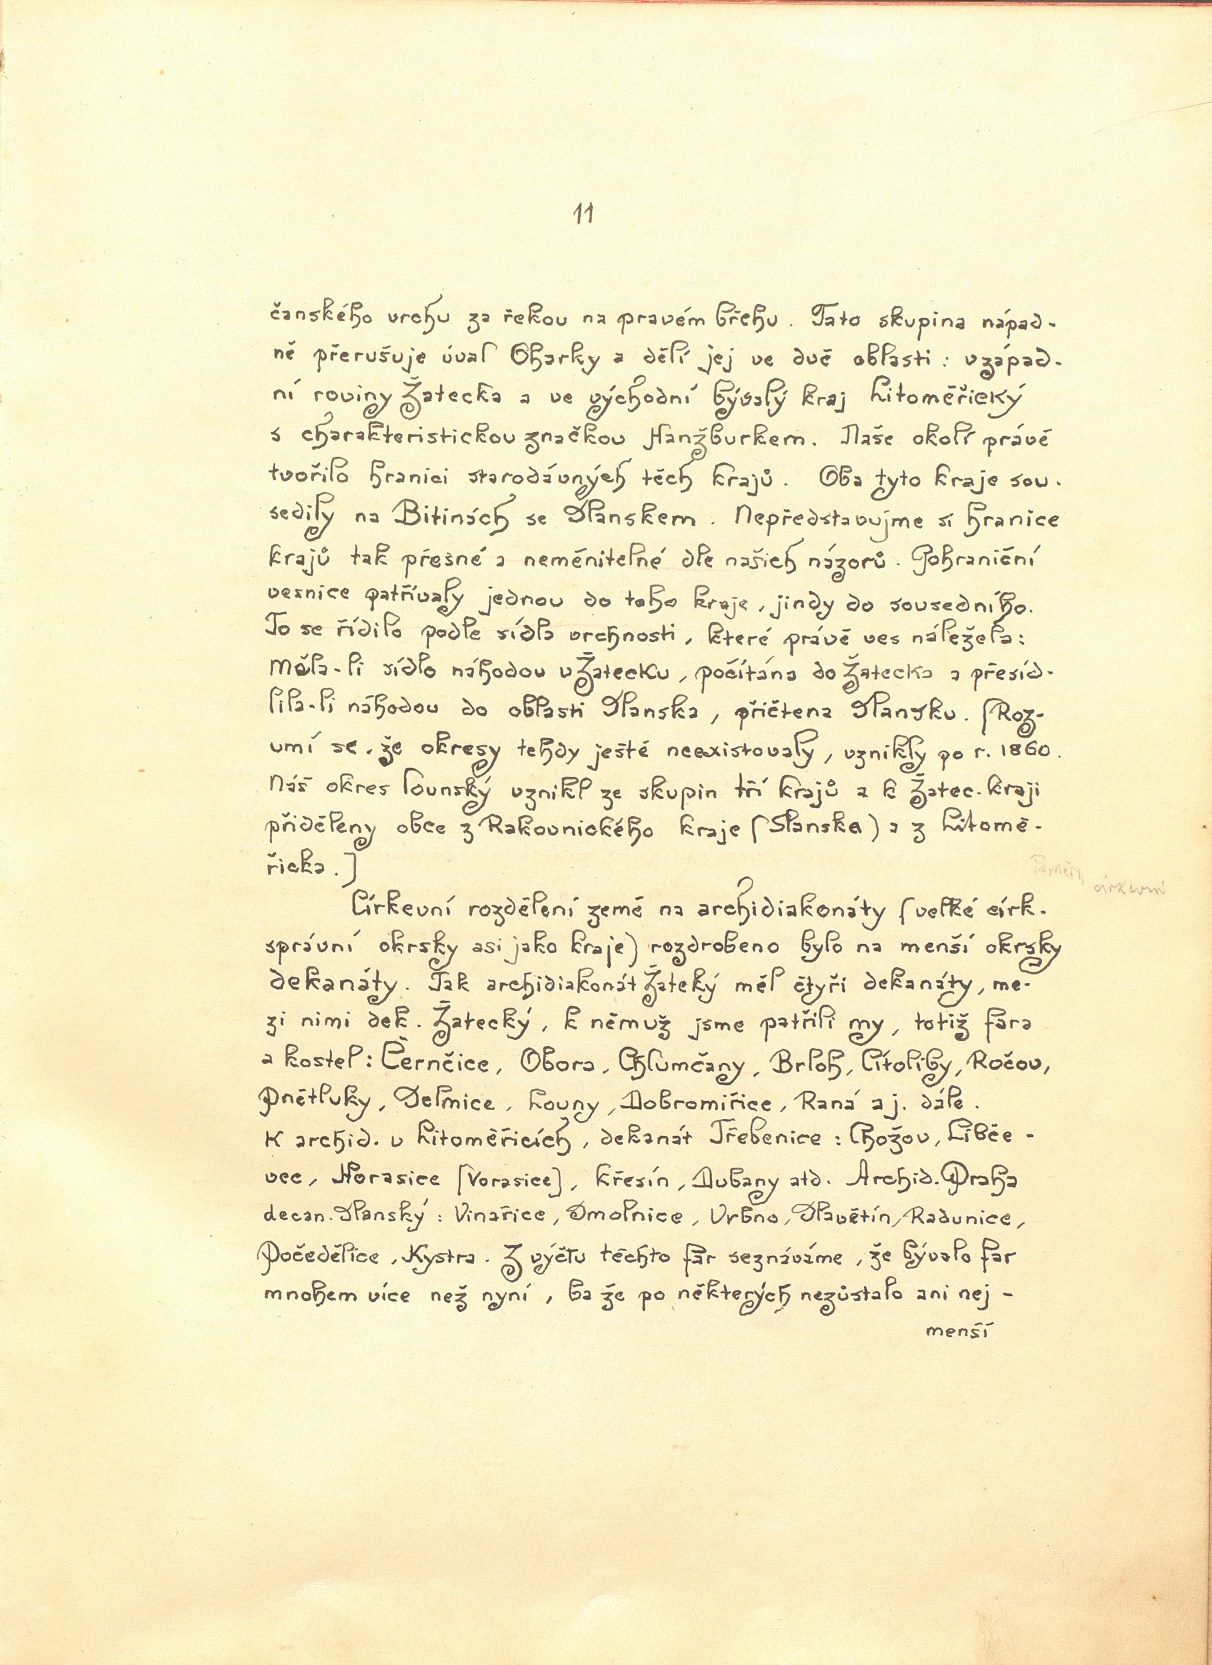 11
čanského vrchu za řekou na pravém břehu. Tato skupina nápad-
ně přerušuje úval Oharky a dělí jej ve dvě oblasti: v západ-
ní roviny Žatecka a ve východní bývalý kraj Litoměřický
s charakteristickou značkou Hanžburkem. Naše okolí právě
tvořilo hranici starodávných těch krajů. Oba tyto kraje sou-
sedily na Bitinách se Slanskem. Nepředstavujme si hranice
krajů tak přesné a neměnitelné dle našich názorů. Pohraniční
vesnice patřívaly jednou do toho kraje, jindy do sousedního.
To se řídilo podle sídla vrchnosti, které právě ves náležela:
měla-li sídlo náhodou v Žatecku, počítána do Žatecka a přesíd-
lila-li náhodou do oblasti Slanska, přičtena Slansku. [Roz-
umí se, že okresy tehdy ještě neexistovaly, vznikly po r. 1860.
Náš okres lounský vznikl ze skupin tří krajů a k Žatec. kraji
přiděleny obce z Rakovnického kraje (Slanska) a z Litomě-
řicka.]
Církevní rozdělení země na archidiakonáty (velké círk.
správní okrsky asi jako kraje) rozdrobeno bylo na menší okrsky
dekanáty. Tak archidiakonát Žateký měl čtyři dekanáty, me-
zi nimi dek. Žatecký, k němuž jsme patřili my, totiž fara
a kostel: Černčice, Obora, Chlumčany, Brloh, Cítoliby, Ročov,
Pnětluky, Selmice, Louny, Dobroměřice, Raná a j. dále.
K archid. v Litoměřicích, dekanát Třebenice: Chožov, Libče-
vec, Horasice [Vorasice], Křesín, Dubany atd. Archid. Praha
decan. Slanský: Vinařice, Smolnice, Vrbno, Slavětín, Radunice,
Počedělice, Kystra. Z výčtu těchto far seznáváme, že bývalo far
mnohem více než nyní, ba že po některých nezůstalo ani nej-
menší
církevní